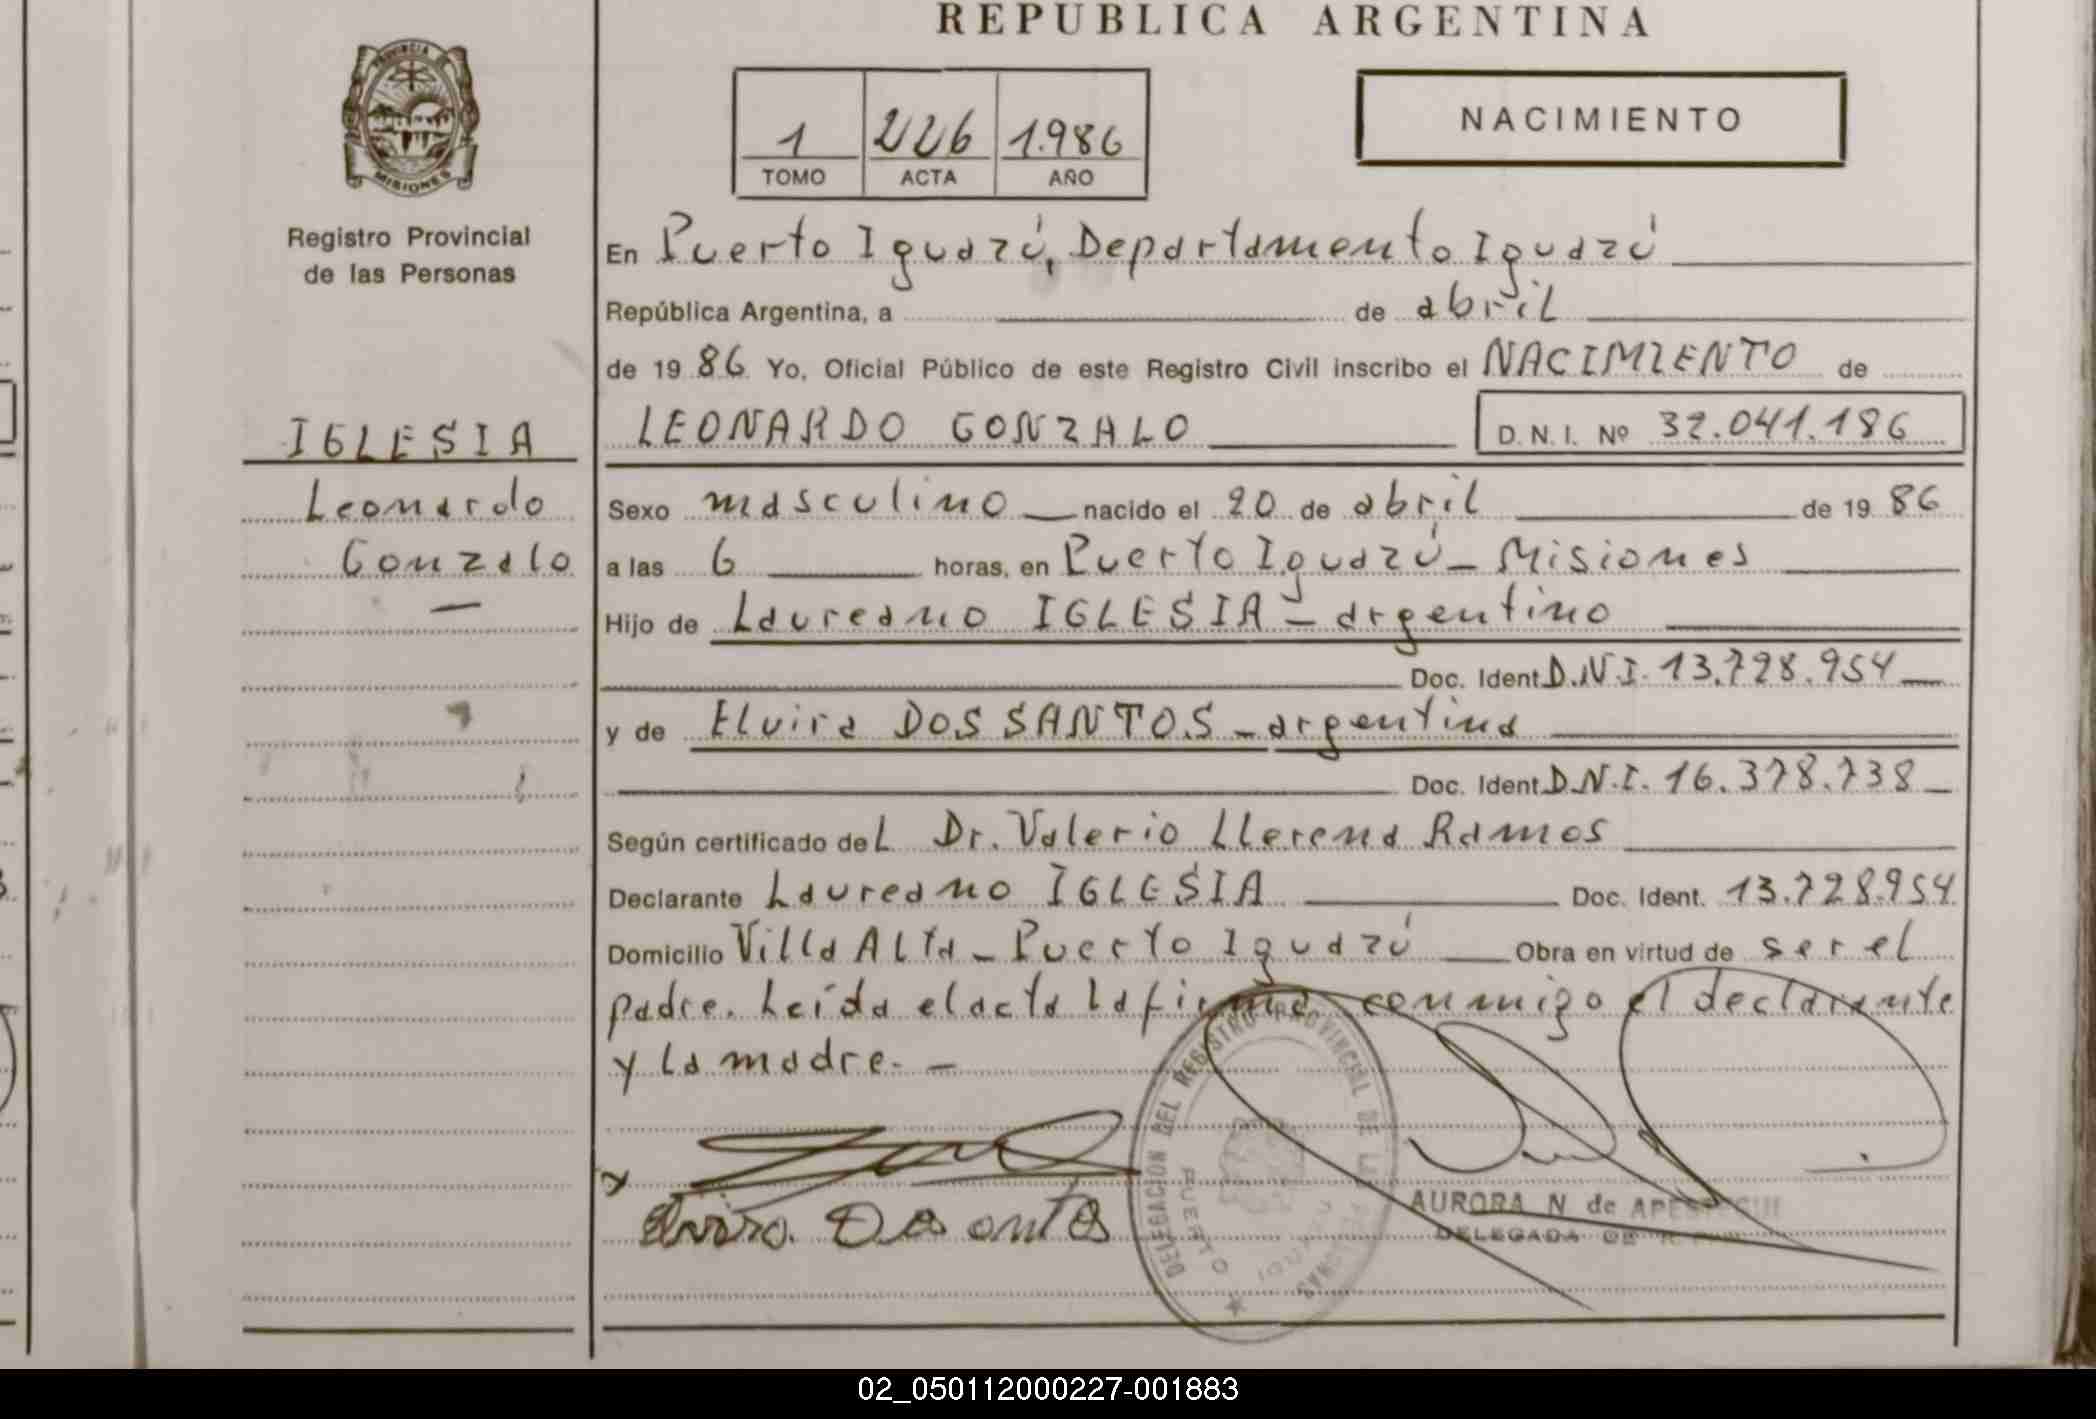 REPUBLICA ARGENTINA
PROVINCIA DE
MISIONES
1 226 1.986
TOMO ACTA AÑO
NACIMIENTO
Registro Provincial
de las Personas
En Puerto Iguazú, Departamento Iguazú
República Argentina, a de abril
de 19 86 Yo, Oficial Público de este Registro Civil inscribo el NACIMIENTO de
IGLESIA
Leonardo
Gonzalo
LEONARDO GONZALO D. N. I. Nº 32.041.186
Sexo masculino nacido el 20 de abril de 19 86
a las 6 horas, en Puerto Iguazú - Misiones
Hijo de Laureano IGLESIA - argentino
Doc. Ident. D.N.I. 13.728.954
y de Elvira DOS SANTOS - argentina
Doc. Ident. D.N.I. 16.378.738
Según certificado del Dr. Valerio Llerena Ramos
Declarante Laureano IGLESIA Doc. Ident. 13.728.954
Domicilio Villa Alta - Puerto Iguazú Obra en virtud de ser el
padre. Leída el acta la firma conmigo el declarante
y la madre. -
DELEGACION DEL REGISTRO PROVINCIAL DE LAS PERSONAS
PUERTO
AURORA N de
DELEGADA DE
02_050112000227-001883